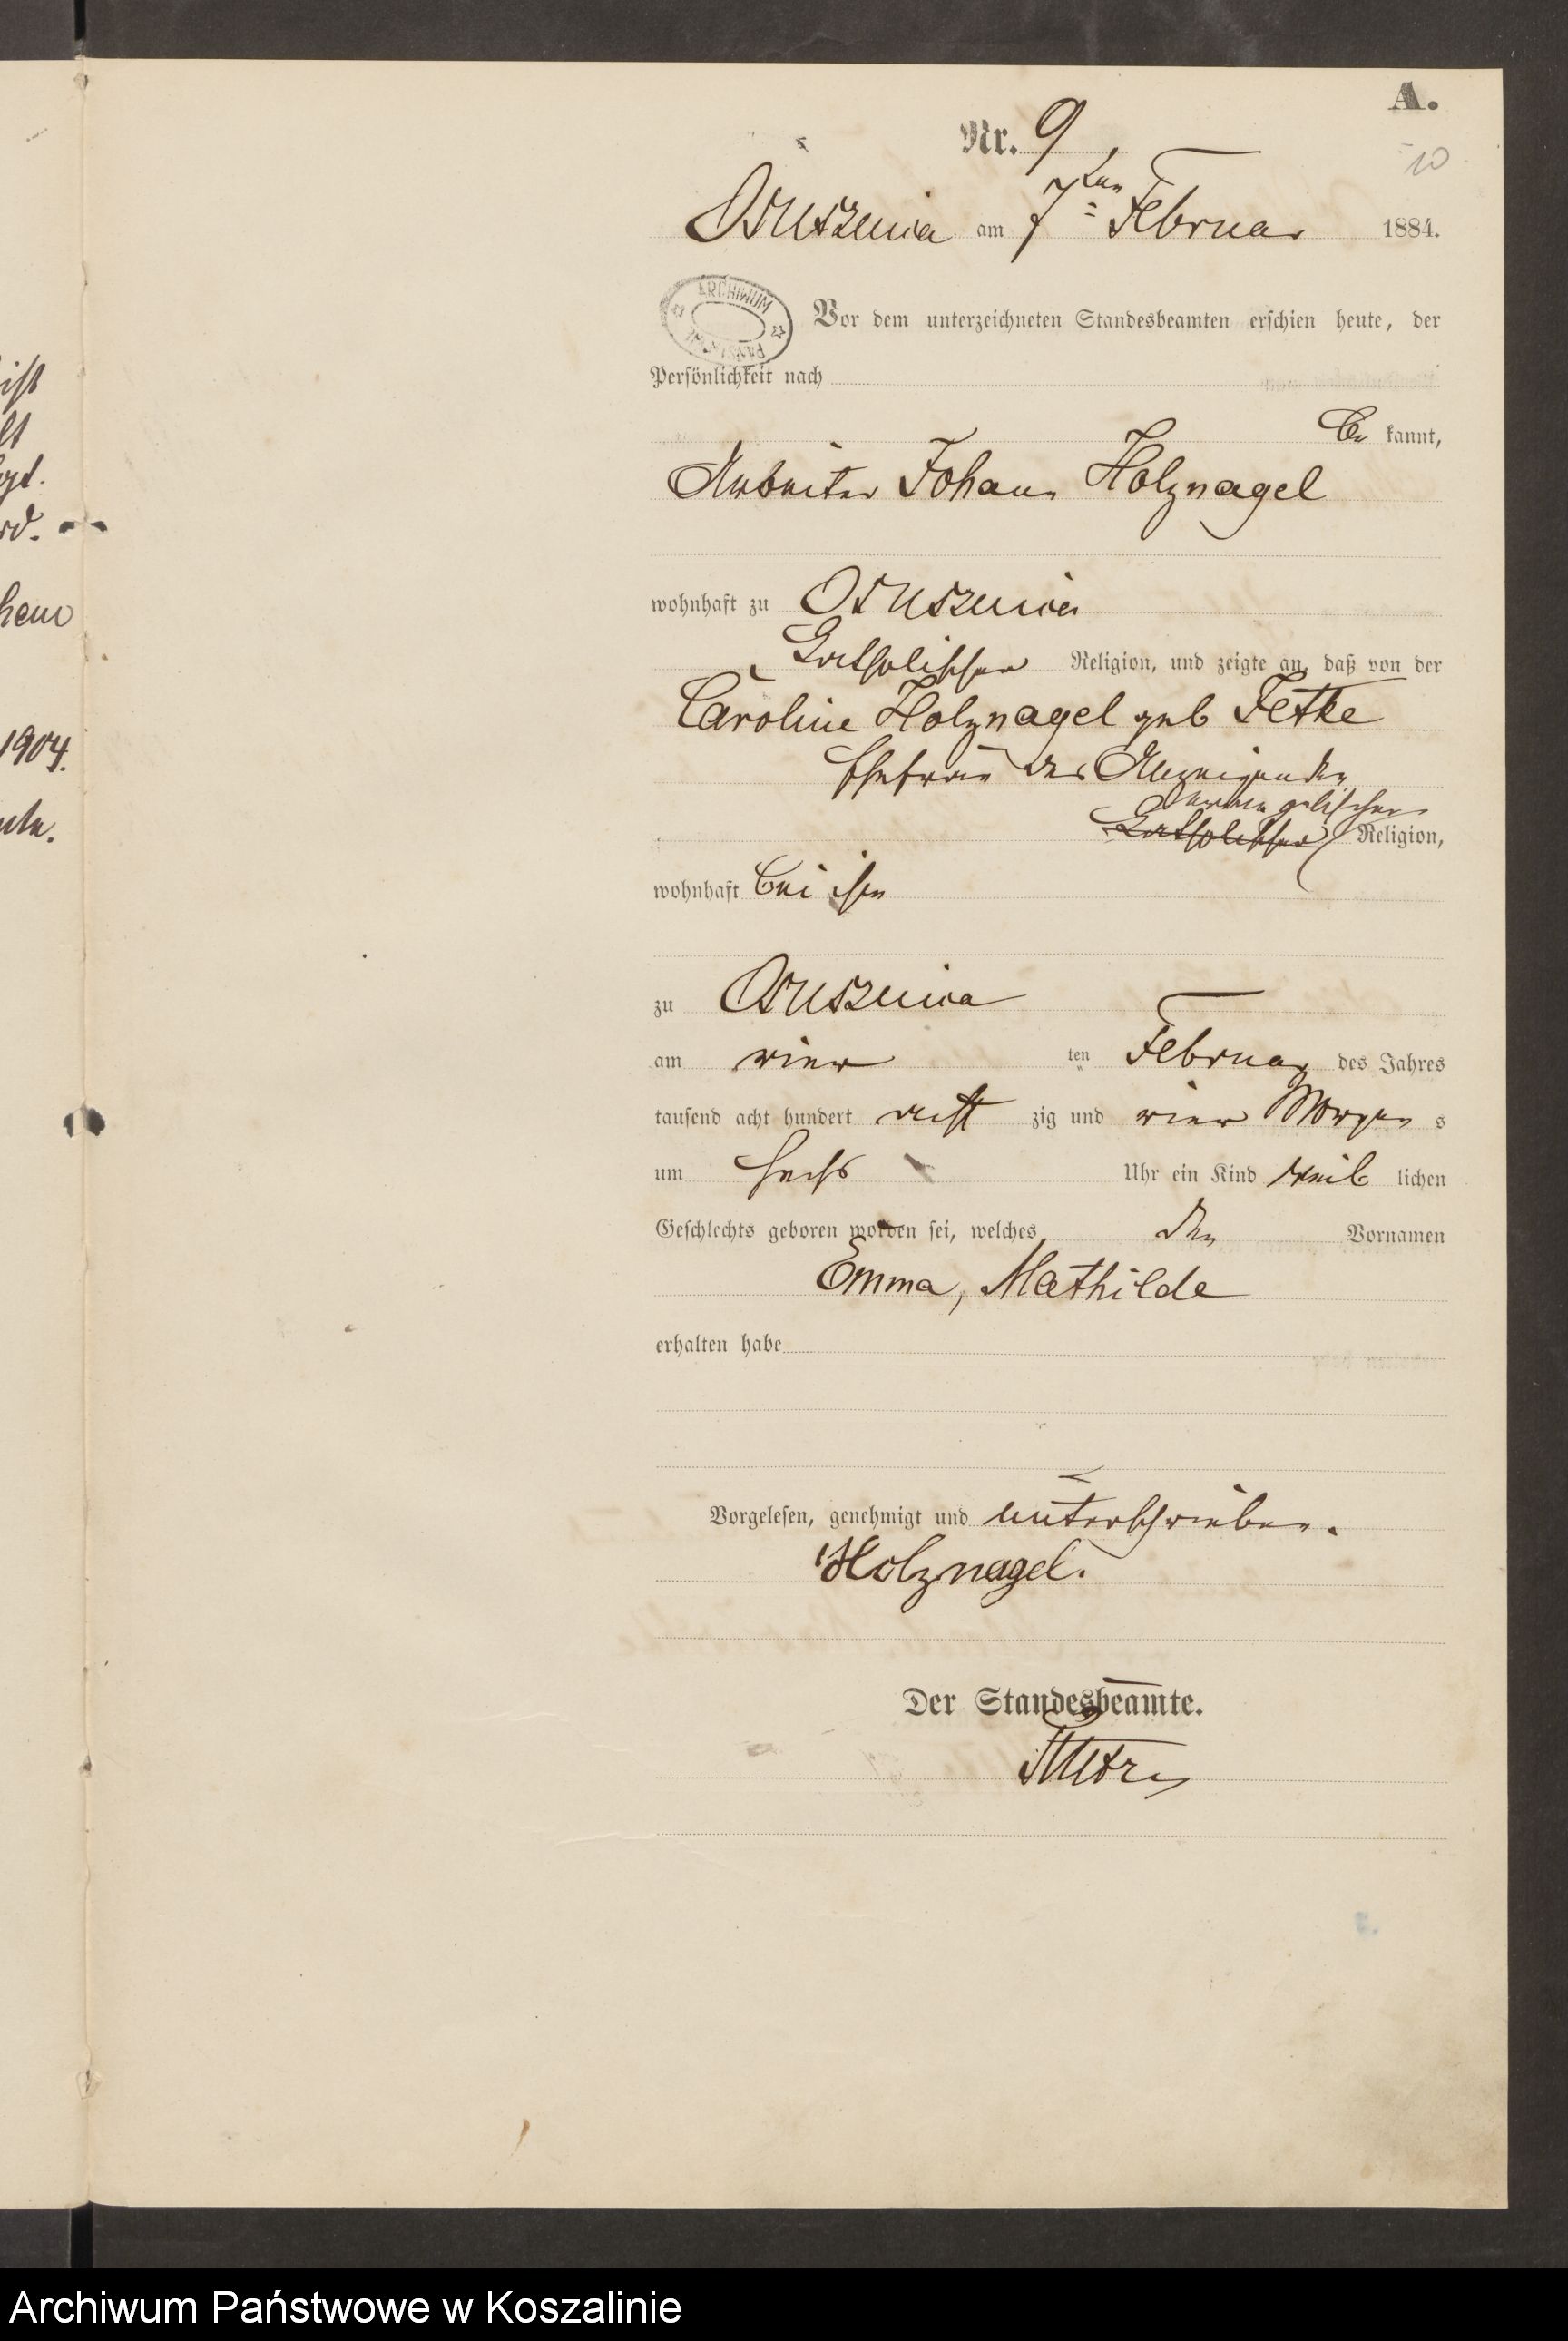 A.
Nr. 9,
10
Ossuszenica am 7ten Februar 1884.
ARCHIWUM
Vor dem unterzeichneten Standesbeamten erschien heute, der
Persönlichkeit nach
be kannt,
Arbeiter Johann Holznagel
wohnhaft zu
katholischer Religion, und zeigte an, daß von der
Caroline Holznagel geb Fetke
Ehefrau des Anzeigenden
evangelischer
katholischer Religion,
wohnhaft bei ihm
zu
am vier ten Februar des Jahres
tausend acht hundert acht zig und vier Morgen s
um sechs Uhr ein Kind weib lichen
Geschlechts geboren worden sei, welches den Vornamen
Emma, Mathilde
erhalten habe
Vorgelesen, genehmigt und unterschrieben.
Holznagel.
Der Standesbeamte.
ist
1904.
Archiwum Państwowe w Koszalinie